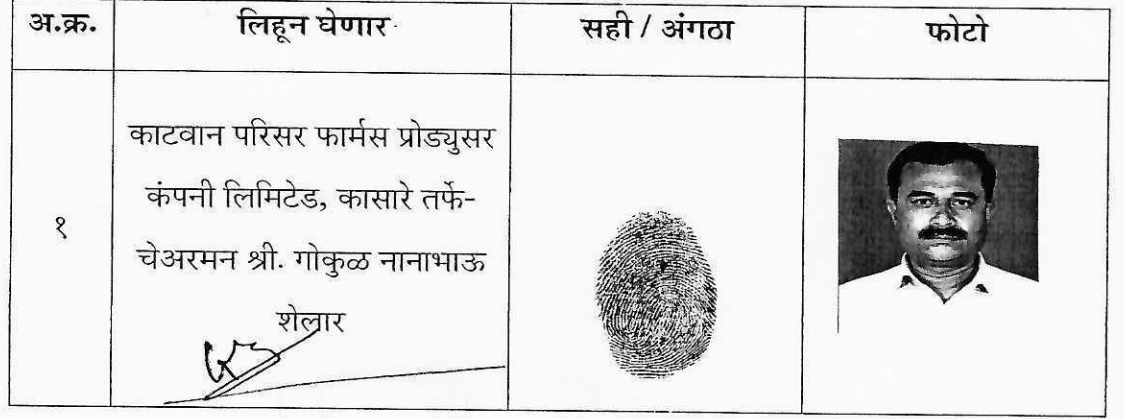 अ.क्र. लिहून घेणार सही / अंगठा फोटो
काटवान परिसर फार्मस प्रोड्युसर
कंपनी लिमिटेड, कासारे तर्फे-
१
चेअरमन श्री. गोकुळ नानाभाऊ
शेलार